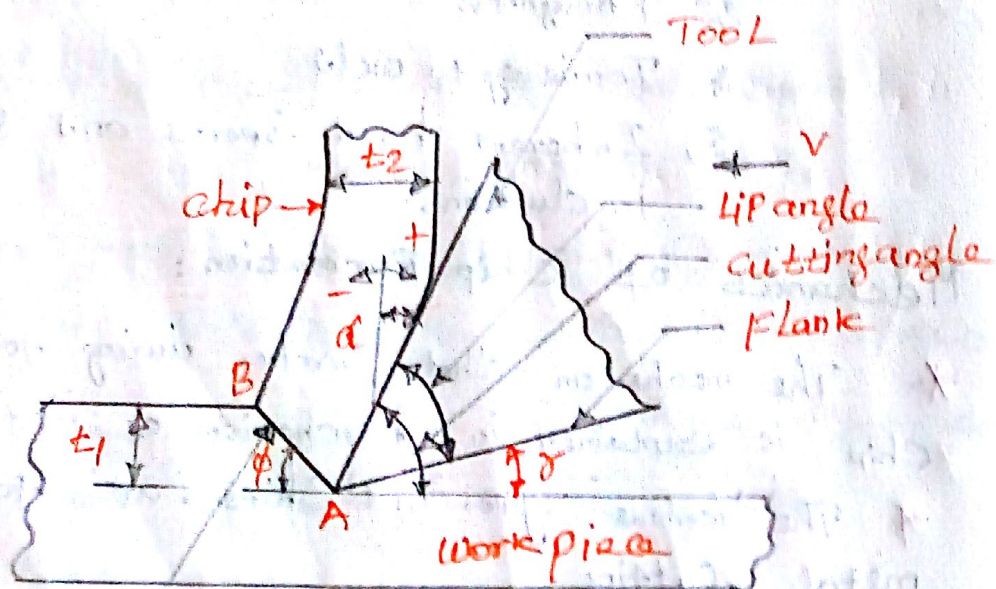 TOOL
V
t2
chip→
Lip angle
+
cutting angle
-
α
Flank
B
t1
φ
γ
A
work piece